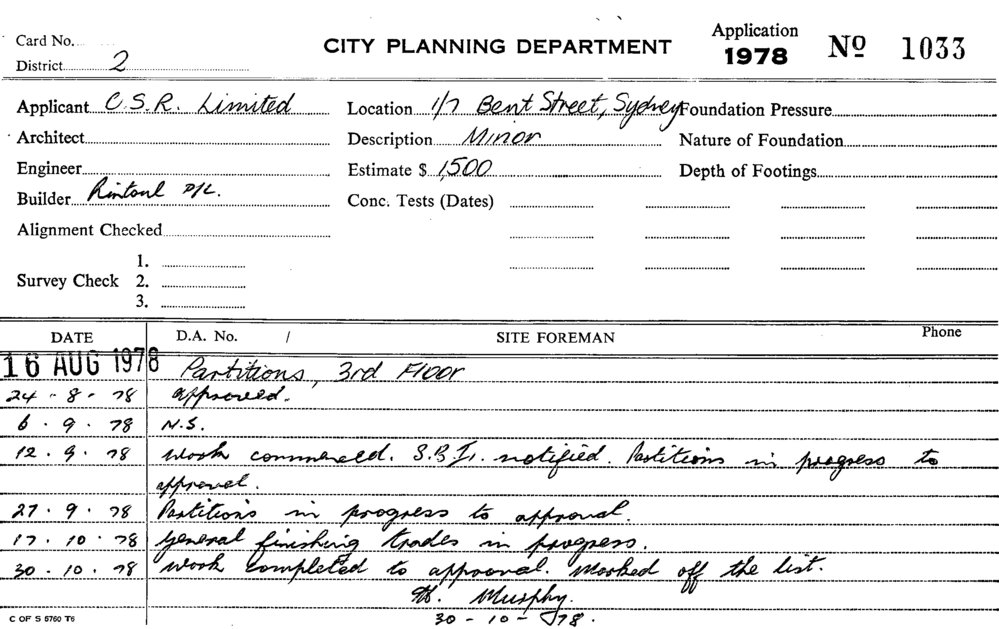 Card No.
CITY PLANNING DEPARTMENT
Application
1978
No 1033
District 2
Applicant C.S.R. Limited
Location 1/7 Bent Street, Sydney
Foundation Pressure
Architect
Description Minor
Nature of Foundation
Engineer
Estimate $ 1,500
Depth of Footings
Builder Rintoul P/L.
Conc. Tests (Dates)
Alignment Checked
Survey Check
1.
2.
3.
DATE D.A. No. / SITE FOREMAN Phone
16 AUG 1978 Partitions, 3rd Floor
24 - 8 - 78 approved.
6 . 9 . 78 N.S.
12 . 9 . 78 Work commenced. S.B.I. notified. Partitions in progress to
approval.
27 . 9 . 78 Partitions in progress to approval.
17 . 10 . 78 General finishing trades in progress.
30 . 10 . 78 Work completed to approval. Marked off the list.
Murphy.
30 - 10 - 78.
C OF S 5760 T6